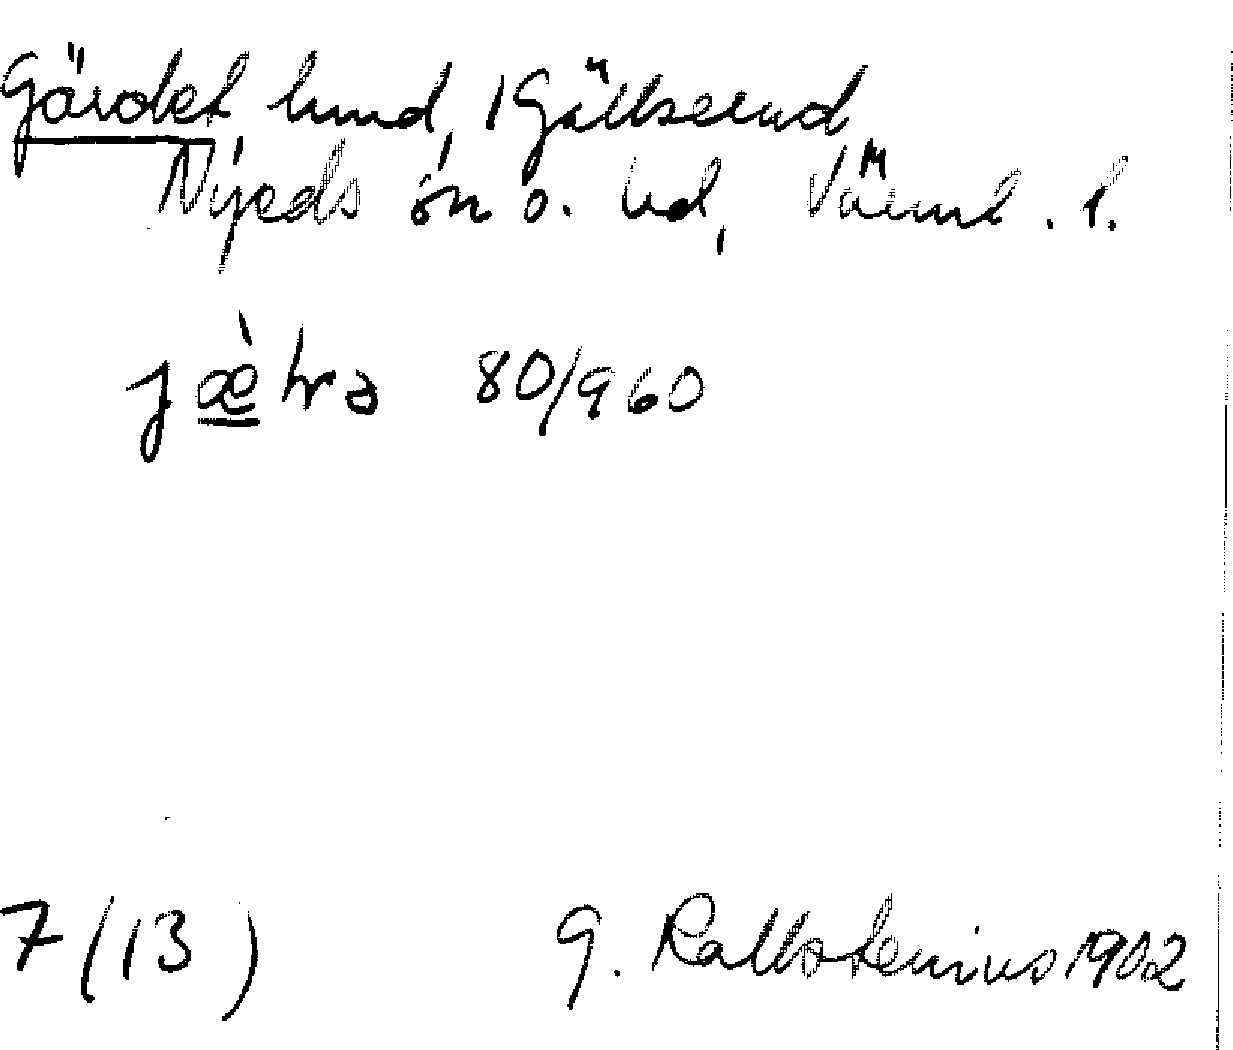 Gärdet, hmd, Gällserud
Nyeds sn o. hd, Värml. l.
jæ̀tra 80/960
7 (13) G. Kallstenius 1902